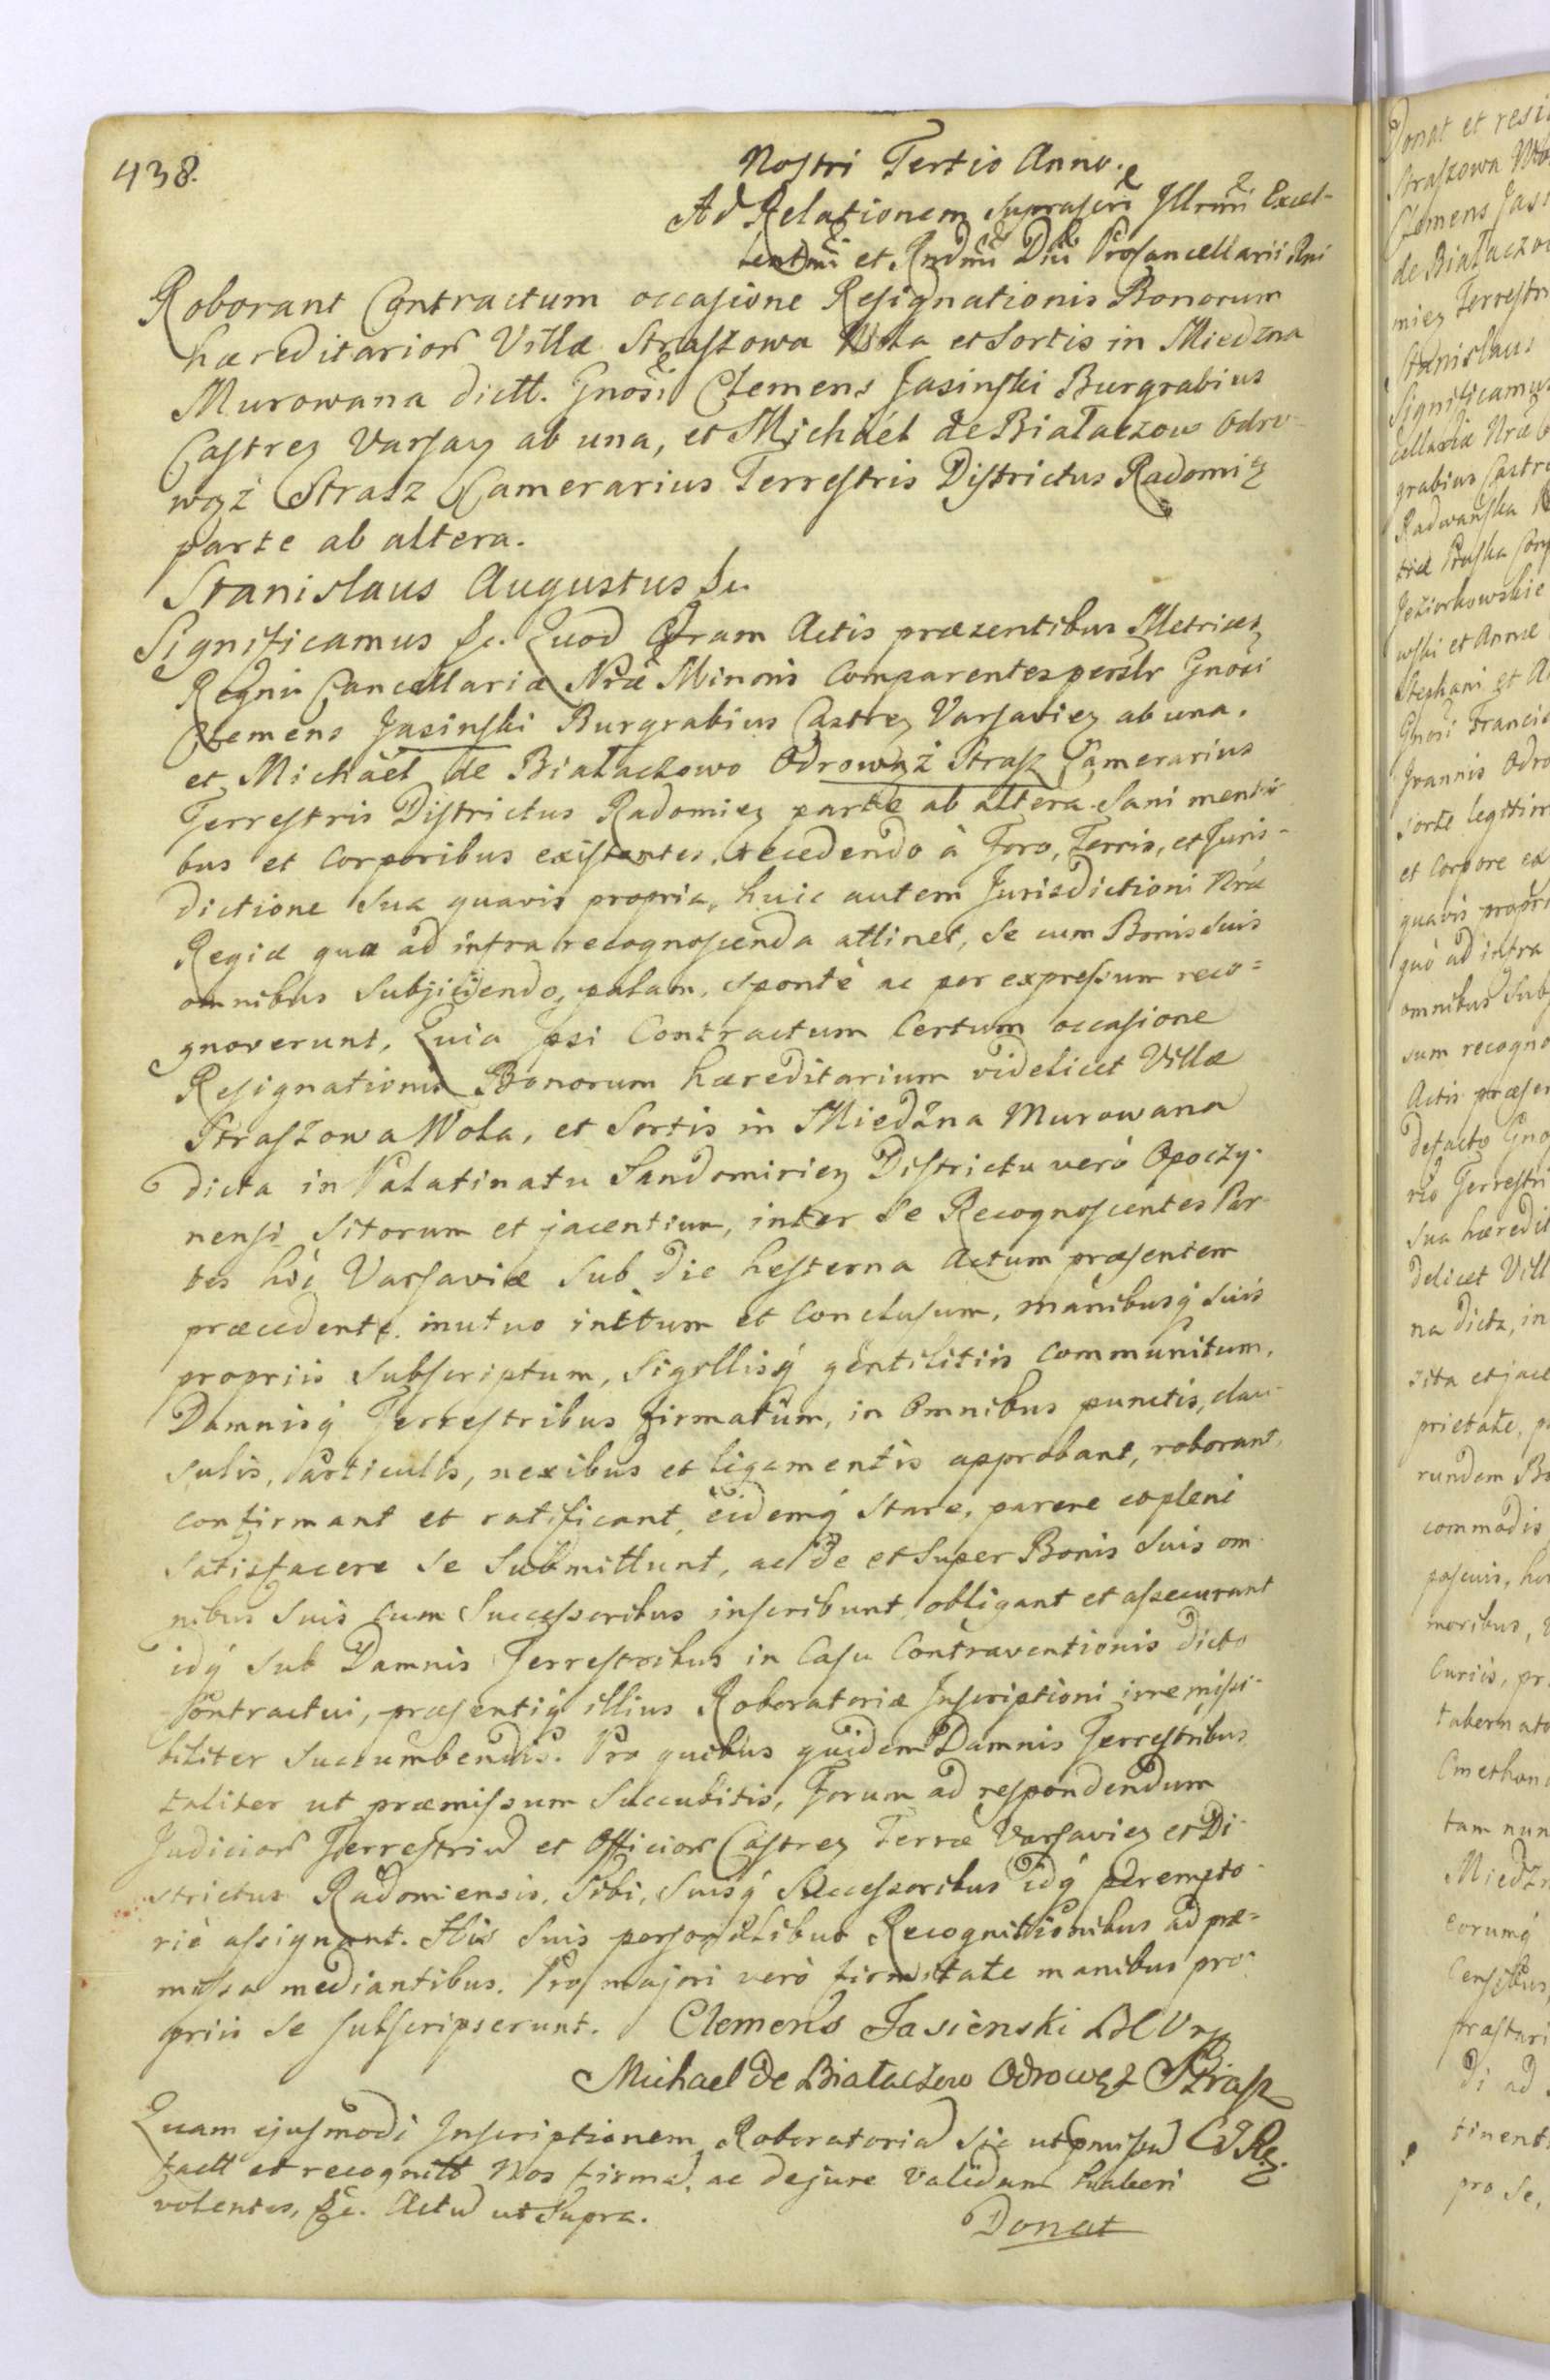 438.
Nostri Tertio Anno.
Ad Relationem suprascri Illrmi Excel-
lentmi et Rndmi Dni Procancellarii Rni
Roborant Contractum occasione Resignationis Bonorum
hæreditarior Villæ Straszowa Wola et Sortis in Miedzna
Murowana dictt. Gnosi Clemens Jasinski Burgrabius
Castrez Varsaz ab una, et Michaël de Białaczow Odro-
wąż Strasz Camerarius Terrestris Districtus Radomiez
parte ab altera.
Stanislaus Augustus &c.
Significamus &c. Quod Coram Actis præsentibus Metrices
Regni Cancellariæ Nræ Minoris Comparentes persltr Gnosi
Clemens Jasinski Burgrabius Castrez Varsaviez ab una.
et Michaël de Białaczowo Odrowąż Strasz Camerarius
Terrestris Districtus Radomiez parte ab altera. Sani menti-
bus et Corporibus existentes, recedendo à Foro, Terris, et Juris-
dictione sua quavis propria, huic autem Jurisdictioni Nræ
Regiæ qua ad infra recognoscenda attinet, se cum Bonis suis
omnibus Subjiciendo, palam, sponte ac per expressum reco=
gnoverunt, Quia Ipsi Contractum Certum occasione
Resignationis Bonorum hæreditarium videlicet Villæ
Straszowa Wola, et Sortis in Miedzna Murowana
dicta in Palatinatu Sandomiriez Districtu verò Opoczy-
nensi sitorum et jacentium, inter se Recognoscentes Par-
tes hic Varsaviæ Sub die hesterna Actum præsentem
præcedente. mutuo initum et Conclusum, manibusq suis
propriis Subscriptum, Sigillisq gentilitiis Communitum,
Damnisq Terrestribus firmatum, in Omnibus punctis, clau-
sulis, articulis, nexibus et ligamentis approbant, roborant,
confirmant et ratificant, eidemq Stare, parere et pleni
satisfacere se Submittunt, ac de et super Bonis suis om-
nibus suis cum Successoribus inscribunt, obligant et assecurant
idq Sub Damnis Terrestribus in Casu Contraventionis dicto
Contractui, præsentiq illius Roboratoriæ Inscriptioni irremissi-
biliter succumbendis. Pro quibus quidem Damnis Terrestribus
taliter ut præmissum Succubitis, Forum ad respondendum
Judicior Terrestriu et Officior Castrez Terræ Varsaviez et Di-
strictus Radomiensis, Sibi, suisq Successoribus idq perempto-
riè assignant. His suis personalibus Recognitionibus ad præ=
missa mediantibus. Pro majori verò firmitate manibus pro-
priis se subscripserunt. Clemens Jasienski
Michael de Białaczow Odrowąż Strasz
Quam ejusmodi Inscriptionem Roboratoria sic ut pmissu CDRz.
factt et recognitt Nos firma, ac de jure validam haberi
volentes, &c. Actu ut Supra.
Donat
Donat et resi
Straszowa Wo
Clemens Jasi
de Białaczow
miez Terrestri
Stanislaus
Significamus
cellariæ Nræ
grabius Castre
Radwańska
Jeziorkowskie
wski et Annæ
Stephani et
Gnosi Francis
Joannis Odro
sorte legitim
et Corpore ex
quavis propri
quò ad infra
omnibus Sub
sum recogno
Actis præsen
defacto Gno
rio Terrestri
sua hæredit
delicet Vill
na dicta, in
sita et jace
prietate, p
rundem Bo
commodis
pascuis, hor
moribus,
Curiis, pr
tabernato
Cmethon
tam nun
Miedzn
eorumq
Censibus,
præstari
di ad
tinenti
pro se,